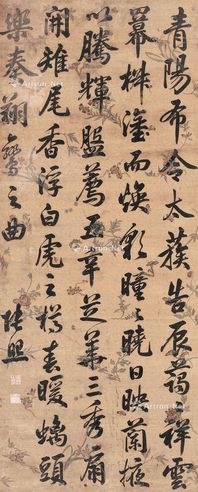 青陽布令太蔟告辰藹祥雲
羃椒塗而煥彩曈曈曉日映蘭掖
以騰輝盤薦五辛芝華三秀扇
開雉尾香浮白虎之樽春暖螭頭
樂奏翔鸞之曲
張照